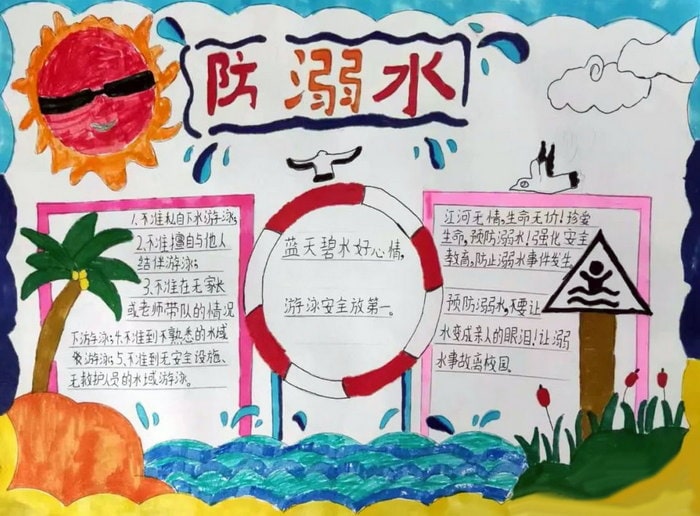 防溺水
1.不准私自下水游泳;
2.不准擅自与他人
结伴游泳;
3.不准在无家长
或老师带队的情况
下游泳;4.不准到不熟悉的水域
游泳;5.不准到无安全设施、
无救护人员的水域游泳。
蓝天碧水好心情,
游泳安全放第一。
江河无情,生命无价!珍爱
生命,预防溺水!强化安全
教育,防止溺水事件发生。
预防溺水,不要让
水变成亲人的眼泪!让溺
水事故离校园。